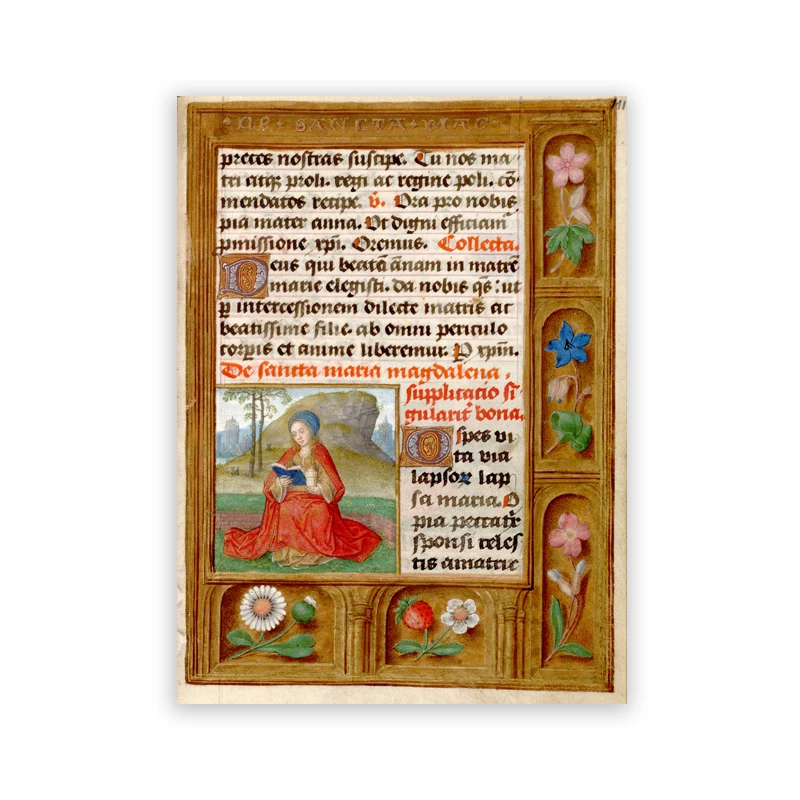 DE + SANCTA + MAG
preces nostras suscipe. Tu nos ma
tri atq; proli. regi ac regine poli. cō
mendatos recipe. v̄. Ora pro nobis
pia mater anna. Ut digni efficiam
pmissione xpi. Oremus. Collecta.
Deus qui beatā annam in matrē
marie elegisti. da nobis qs: ut
p intercessionem dilecte matris ac
beatissime filie. ab omni periculo
corpis et anime liberemur. P xpm.
De sancta maria magdalena,
supplicatio si
gularit bona.
O spes vi
ta via
lapsoꝝ lap
sa maria. O
pia peccatr
sponsi celes
tis amatric